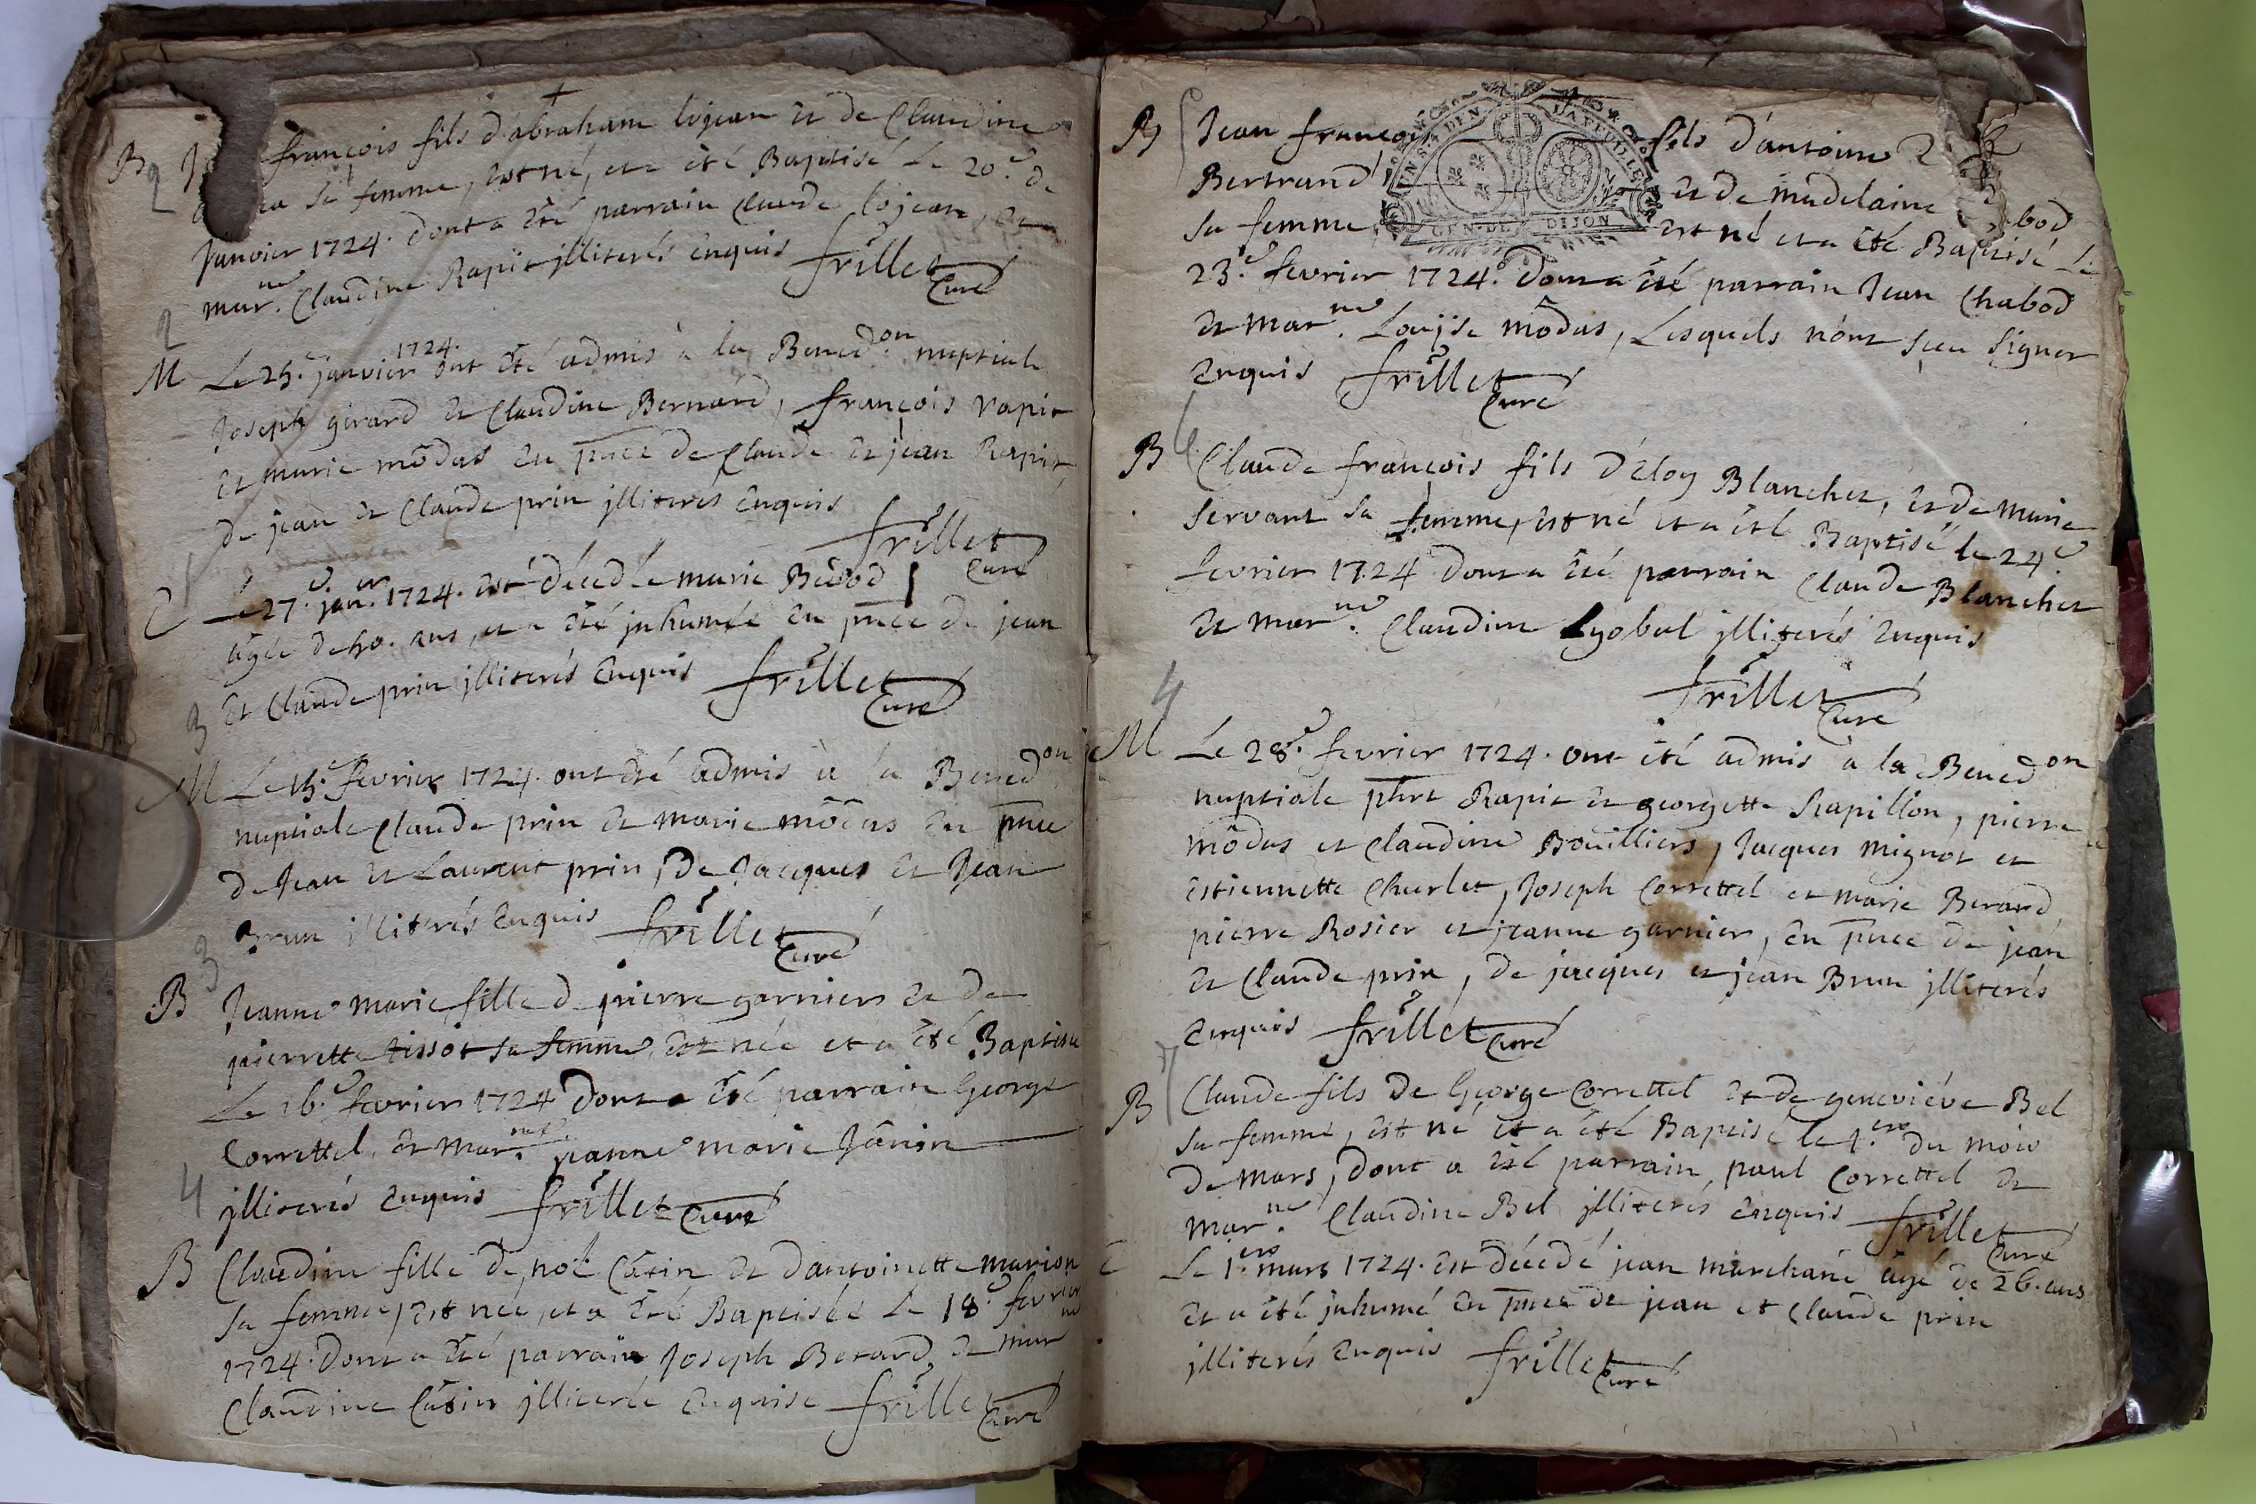 B 2 françois fils d'abraham lojean et de Claudine
sa femme, est né, et a été Baptisé le 20.e de
janvier 1724. dont a été parrain claude lojean, et
mar.ne Claudine Rapit jlliterés enquis frillet Curé
2
M Le 25.e janvier 1724. ont été admis à la Bened.on nuptiale
Joseph girard et Claudine Bernard, françois rapit
et marie môdas en pnce de Claude et jean Rapit
de jean et Claude prin jlliterés enquis
frillet Curé
1
C Le 27.e jan.er 1724. est décedée marie
âgée de 50. ans, et a été jnhumée en pnce de jean
et Claude prin jlliterés enquis frillet Curé
3
M Le 15.e fevrier 1724. ont été admis à la Bened.on
nuptiale Claude prin et marie môdas en pnce
de Jean et Laurent prin, De Jacques et Jean
Brun jlliterés enquis frillet Curé
3
B Jeanne marie fille d pierre garnier et de
pierrette tissot sa femme, est née et a été Baptisée
Le 16.e fevrier 1724 dont a été parrain George
Correttel, et mar.ne jeanne marie Jânin
jlliterés enquis frillet Curé
4
B Claudine fille de noë Câtin et d'antoinette marion
sa femme, est née, et a été Baptisée le 18.e fevrier
1724. dont a été parrain Joseph Berard, et mar.ne
Claudine Câtin jlliterée enquise frillet Curé
B 5 Jean françois fils d'antoine
Bertrand et de madelaine
sa femme, est né et a été Baptisé le
23.e fevrier 1724. dont a été parrain Jean Chabod
et mar.ne Loüise môdas, Lesquels n'ont sçeu signer
enquis frillet Curé
6
B Claude françois fils d'éloy Blanchet, et de marie
servant sa femme, est né et a été Baptisé le 24.e
fevrier 1724 dont a été parrain Claude Blanchet
et mar.ne Claudine jlliterés enquis
frillet Curé
4
M Le 28.e fevrier 1724. ont été admis à la Bened.on
nuptiale phrt Rapit et georgette Rapillon, pierre
môdas et Claudine Bouilliers, Jacques mignot et
estiennette Churlet, Joseph Correttel et marie Berard,
pierre Rosier et jeanne garnier, en pnce de jean
et Claude prin, de jacques et jean Brun jlliterés
enquis frillet Curé
7
B Claude fils de George Correttel et de geneviéve Bel
sa femme, est né et a été Baptisé le 1.ero du mois
de mars, dont a été parrain paul Correttel et
mar.ne Claudine Bel jlliterés enquis frillet Curé
C Le 1.ero mars 1724. est décedé jean marchand âgé de 26. ans
et a été jnhumé en pnce de jean et Claude prin
jlliterés enquis frillet Curé
GEN. DE DIJON